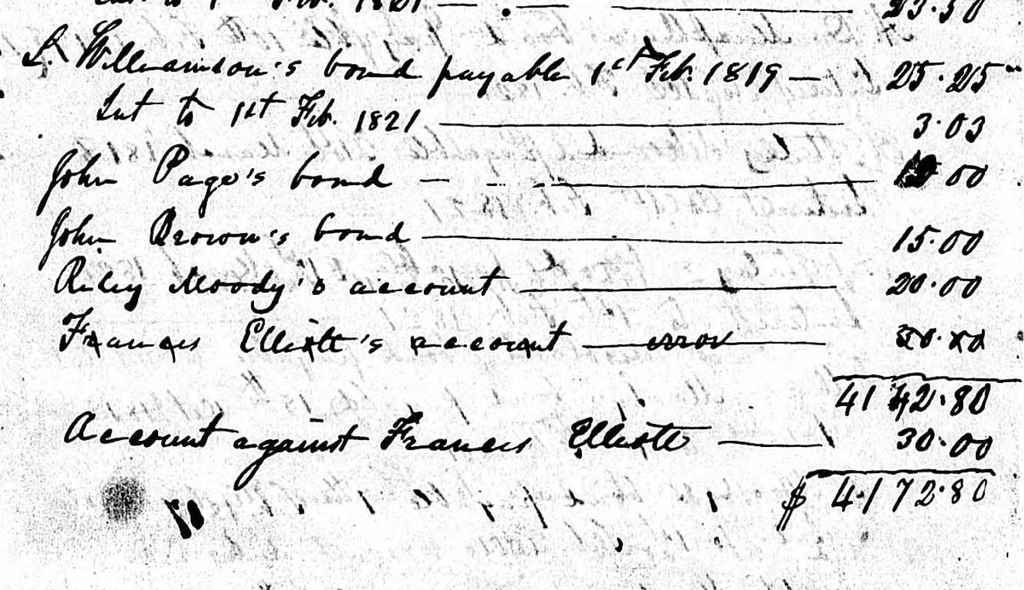 1821 — . — 23.50
L. Williamson's bond payable 1st Feb. 1819 — 25.25
Int to 1st Feb. 1821 — 3.03
John Page's bond — 00
John Brown's bond — 15.00
Riley Moody's account — 20.00
Frances Elliott's account — error
4142.80
Account against Frances Elliott — 30.00
$ 4172.80